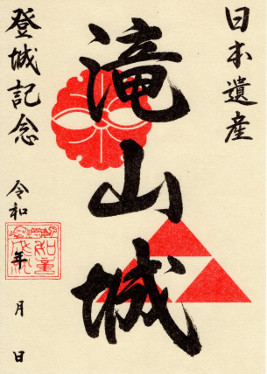 日本遺産
滝山城
登城記念
令和
年
月
日